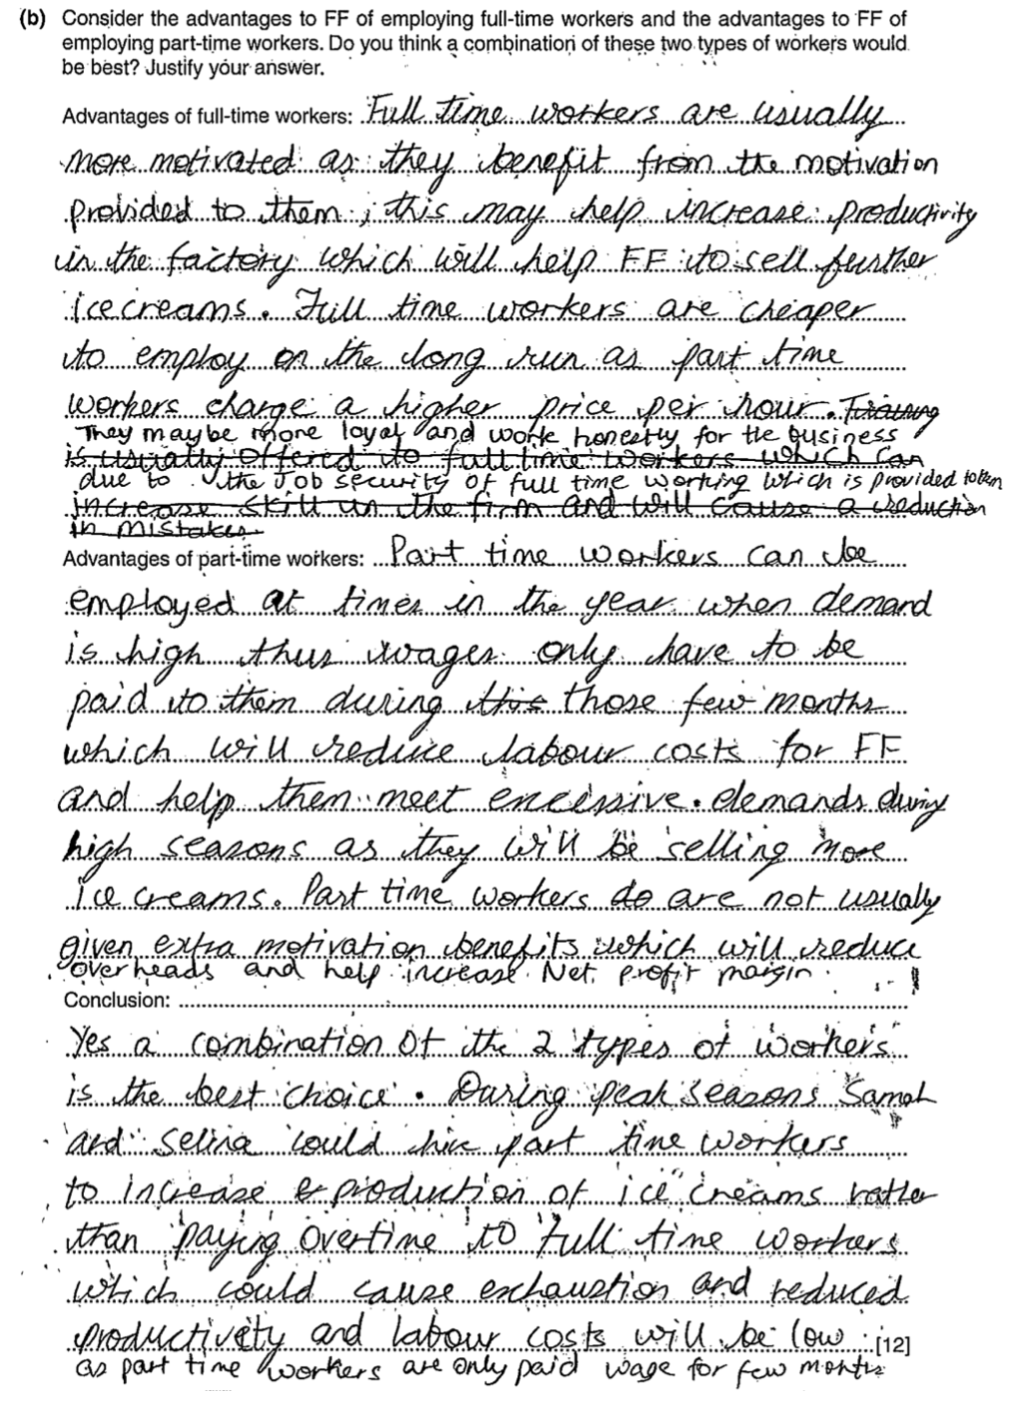 (b) Consider the advantages to FF of employing full-time workers and the advantages to FF of
employing part-time workers. Do you think a combination of these two types of workers would
be best? Justify your answer.
Advantages of full-time workers: Full time workers are usually
more motivated as they benefit from the motivation
provided to them; this may help increase productivity
in the factory which will help FF to sell further
icecreams. Full time workers are cheaper
to employ on the long run as part time
workers charge a higher price per hour. Training
They maybe more loyal and work honestly for the business
is usually offered to full time workers which can
due to the Job security of full time working which is provided to them
increase skill in the firm and will cause a reduction
in mistakes
Advantages of part-time workers: Part time workers can be
employed at times in the year when demand
is high thus wages only have to be
paid to them during this those few months
which will reduce labour costs for FF
and help them meet excessive demands during
high seasons as they will be selling more
ice creams. Part time workers do are not usually
given extra motivation benefits which will reduce
overheads and help increase Net profit margin.
Conclusion:
Yes a combination of the 2 types of workers
is the best choice. During peak seasons Samah
and Selina could hire part time workers
to increase production of ice creams rather
than paying overtime to full time workers
which could cause exhaustion and reduced
productivity and labour costs will be low [12]
as part time workers are only paid wage for few months